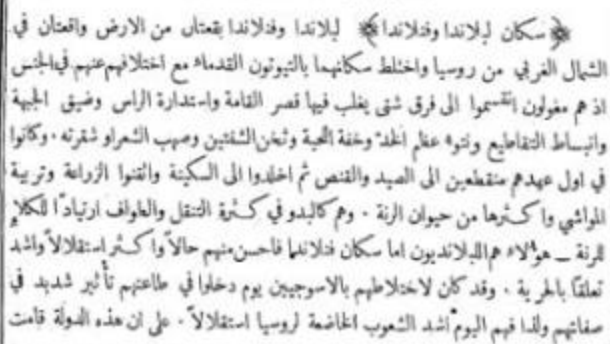 ﴿ سكان لبلاندا وفنلاندا ﴾ لبلاندا وفنلاندا بقعتان من الارض واقعتان في
الشمال الغربي من روسيا واختلط سكانهما بالتيوتون القدماء مع اختلافهم عنهم في الجنس
اذ هم مغوليون انقسموا الى فرق شتى يغلب فيها قصر القامة واستدارة الراس وضيق الجبهة
وانبساط التقاطيع ونتوء عظم الخد وخفة اللحية وثخن الشفتين وصهب الشعر او شقرته . وكانوا
في اول عهدهم منقطعين الى الصيد والقنص ثم اخلدوا الى السكينة واتقنوا الزراعة وتربية
المواشي واكثرها من حيوان الرنة . وهم كالبدو في كثرة التنقل والطواف ارتيادًا للكلاٍ
للرنة _ هولاء هم اللبلانديون اما سكان فنلاندا فاحسن منهم حالاً واكثر استقلالاً واشد
تعلقًا بالحرية . وقد كان لاختلاطهم بالاسوجيين يوم دخلوا في طاعتهم تأثير شديد في
صفاتهم ولذا فهم اليوم اشد الشعوب الخاضعة لروسيا استقلالاً . على ان هذه الدولة قامت